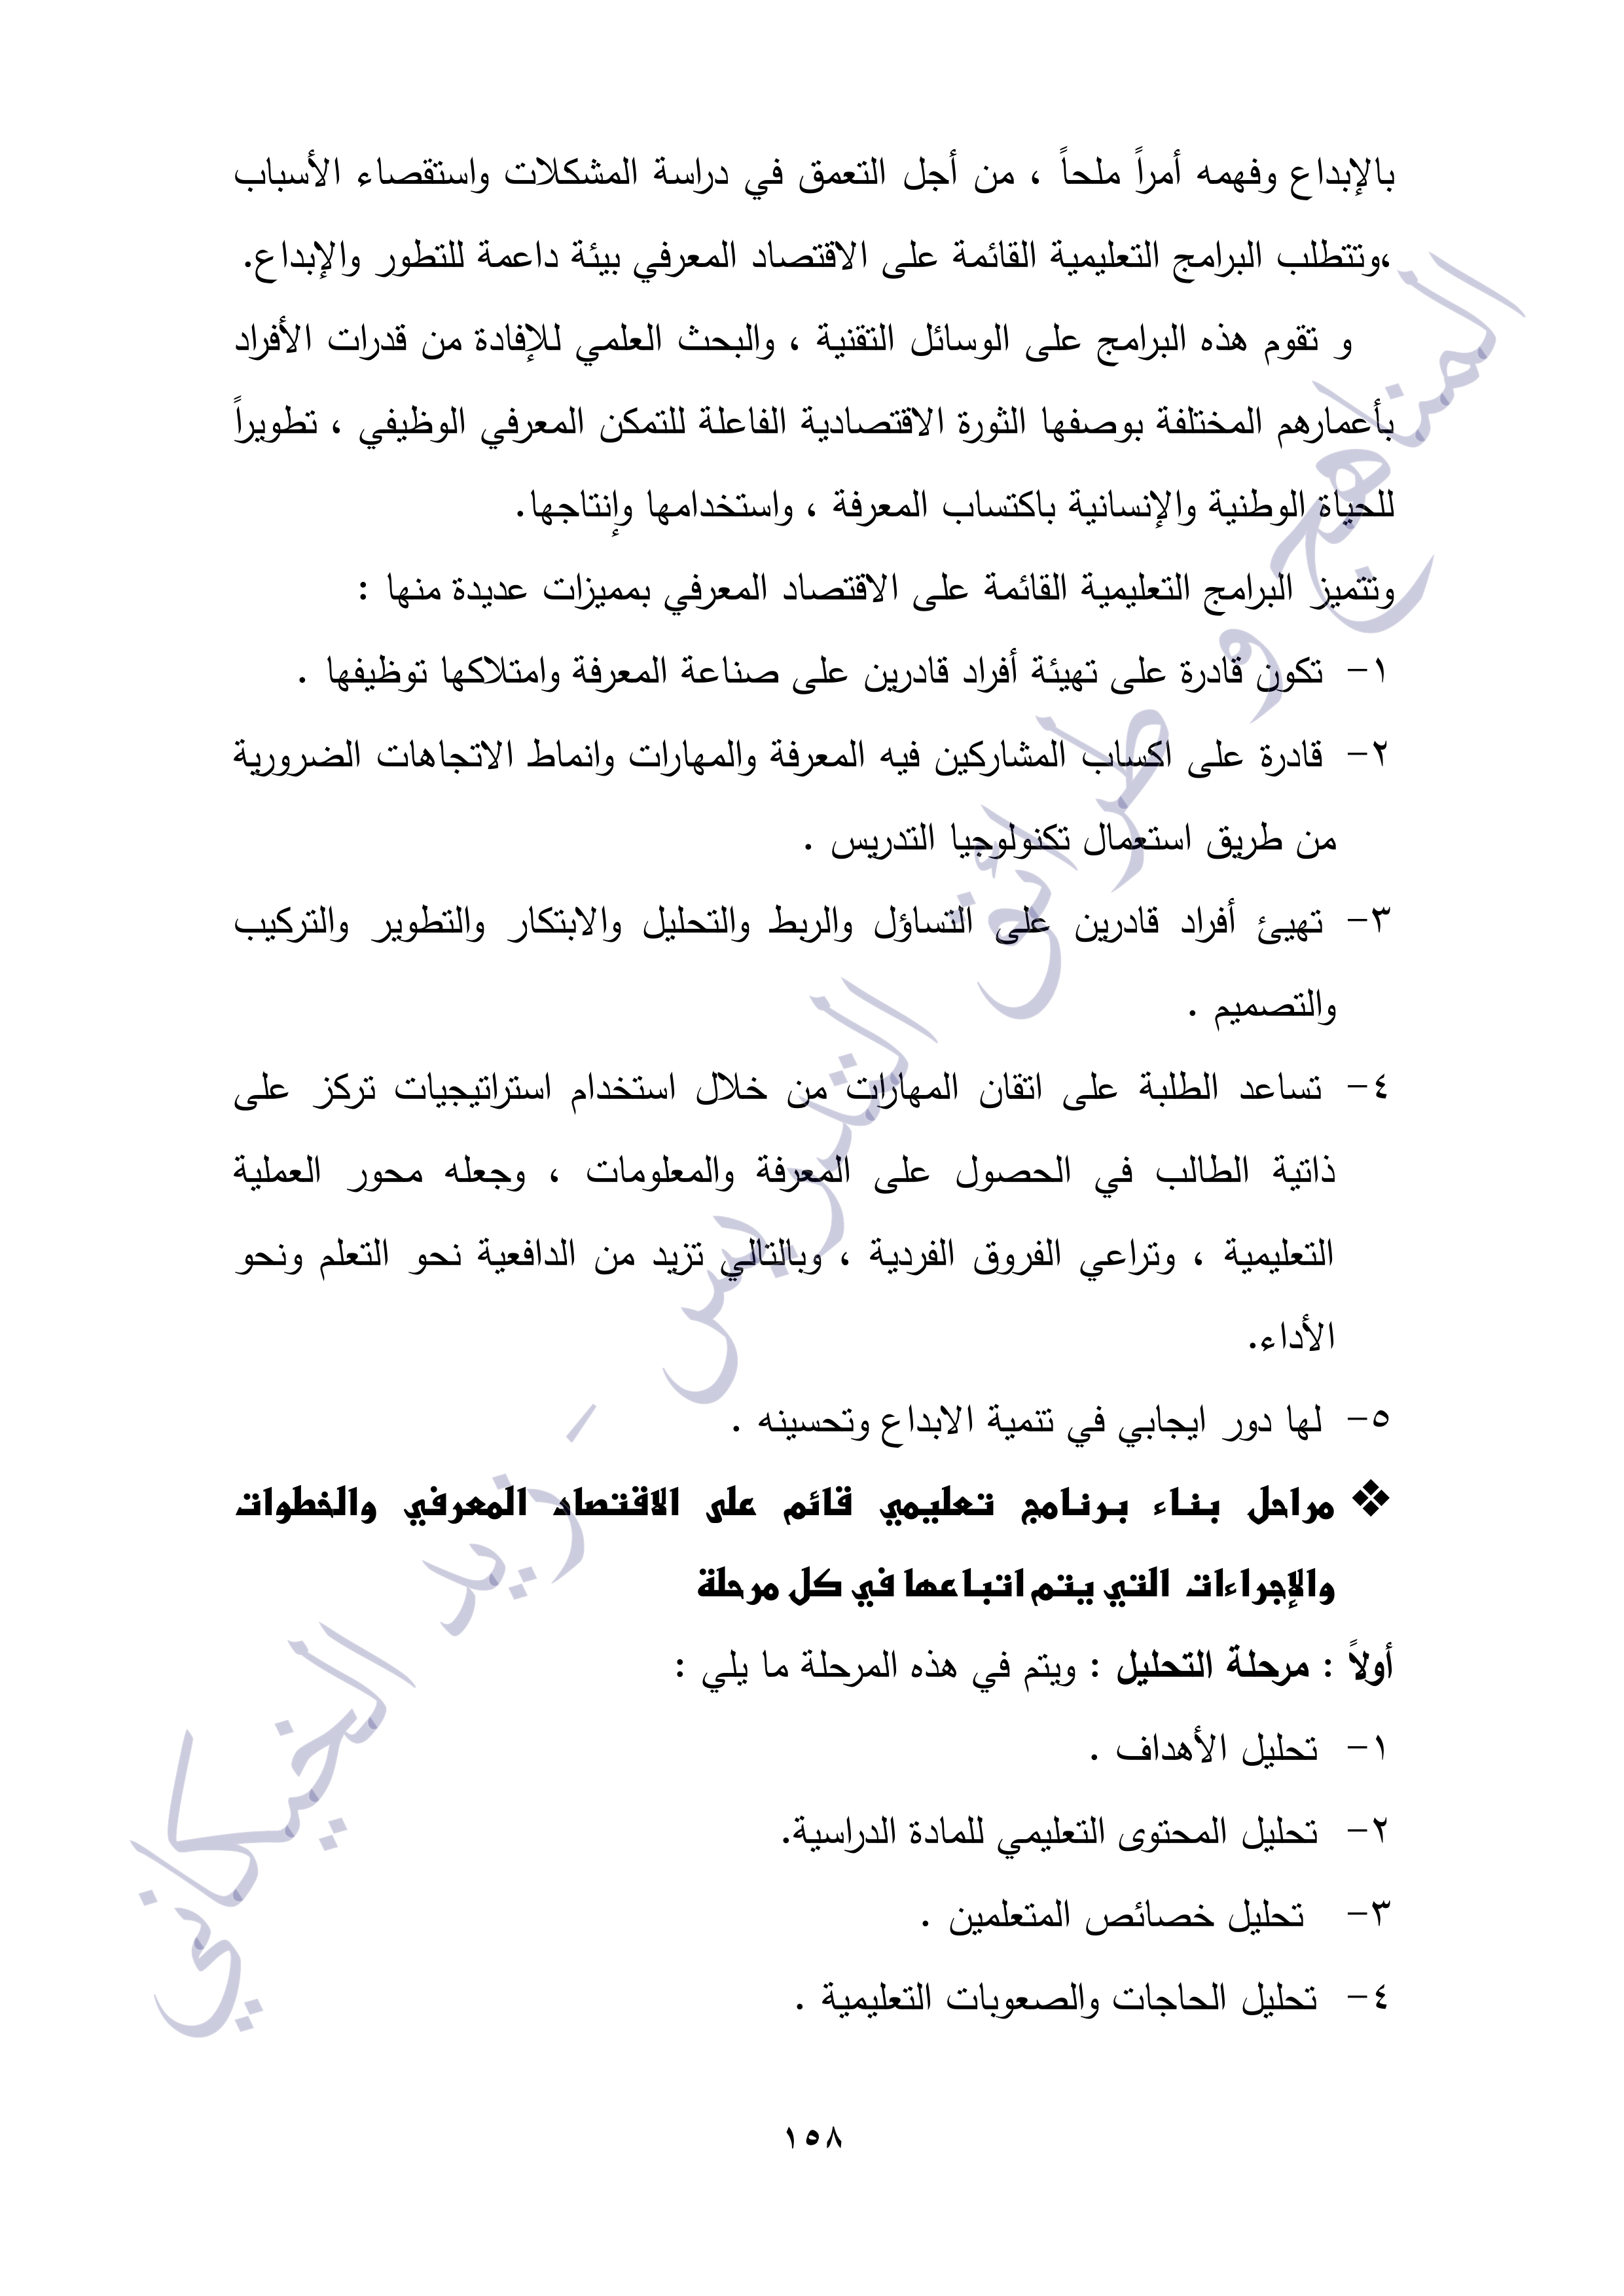 بالإبداع وفهمه أمراً ملحاً ، من أجل التعمق في دراسة المشكلات واستقصاء الأسباب
،وتتطلب البرامج التعليمية القائمة على الاقتصاد المعرفي بيئة داعمة للتطور والإبداع.
و تقوم هذه البرامج على الوسائل التقنية ، والبحث العلمي للإفادة من قدرات الأفراد
بأعمارهم المختلفة بوصفها الثورة الاقتصادية الفاعلة للتمكن المعرفي الوظيفي ، تطويراً
للحياة الوطنية والإنسانية باكتساب المعرفة ، واستخدامها وإنتاجها.
وتتميز البرامج التعليمية القائمة على الاقتصاد المعرفي بمميزات عديدة منها :
١- تكون قادرة على تهيئة أفراد قادرين على صناعة المعرفة وامتلاكها توظيفها .
٢- قادرة على اكساب المشاركين فيه المعرفة والمهارات وانماط الاتجاهات الضرورية
من طريق استعمال تكنولوجيا التدريس .
٣- تهيئ أفراد قادرين على التساؤل والربط والتحليل والابتكار والتطوير والتركيب
والتصميم .
٤- تساعد الطلبة على اتقان المهارات من خلال استخدام استراتيجيات تركز على
ذاتية الطالب في الحصول على المعرفة والمعلومات ، وجعله محور العملية
التعليمية ، وتراعي الفروق الفردية ، وبالتالي تزيد من الدافعية نحو التعلم ونحو
الأداء.
٥- لها دور ايجابي في تنمية الابداع وتحسينه .
❖ مراحل بناء برنامج تعليمي قائم على الاقتصاد المعرفي والخطوات
والإجراءات التي يتم اتباعها في كل مرحلة
أولاً : مرحلة التحليل : ويتم في هذه المرحلة ما يلي :
١- تحليل الأهداف .
٢- تحليل المحتوى التعليمي للمادة الدراسية.
٣- تحليل خصائص المتعلمين .
٤- تحليل الحاجات والصعوبات التعليمية .
١٥٨
المناهج و طرائق التدريس - زيد الخيكاني